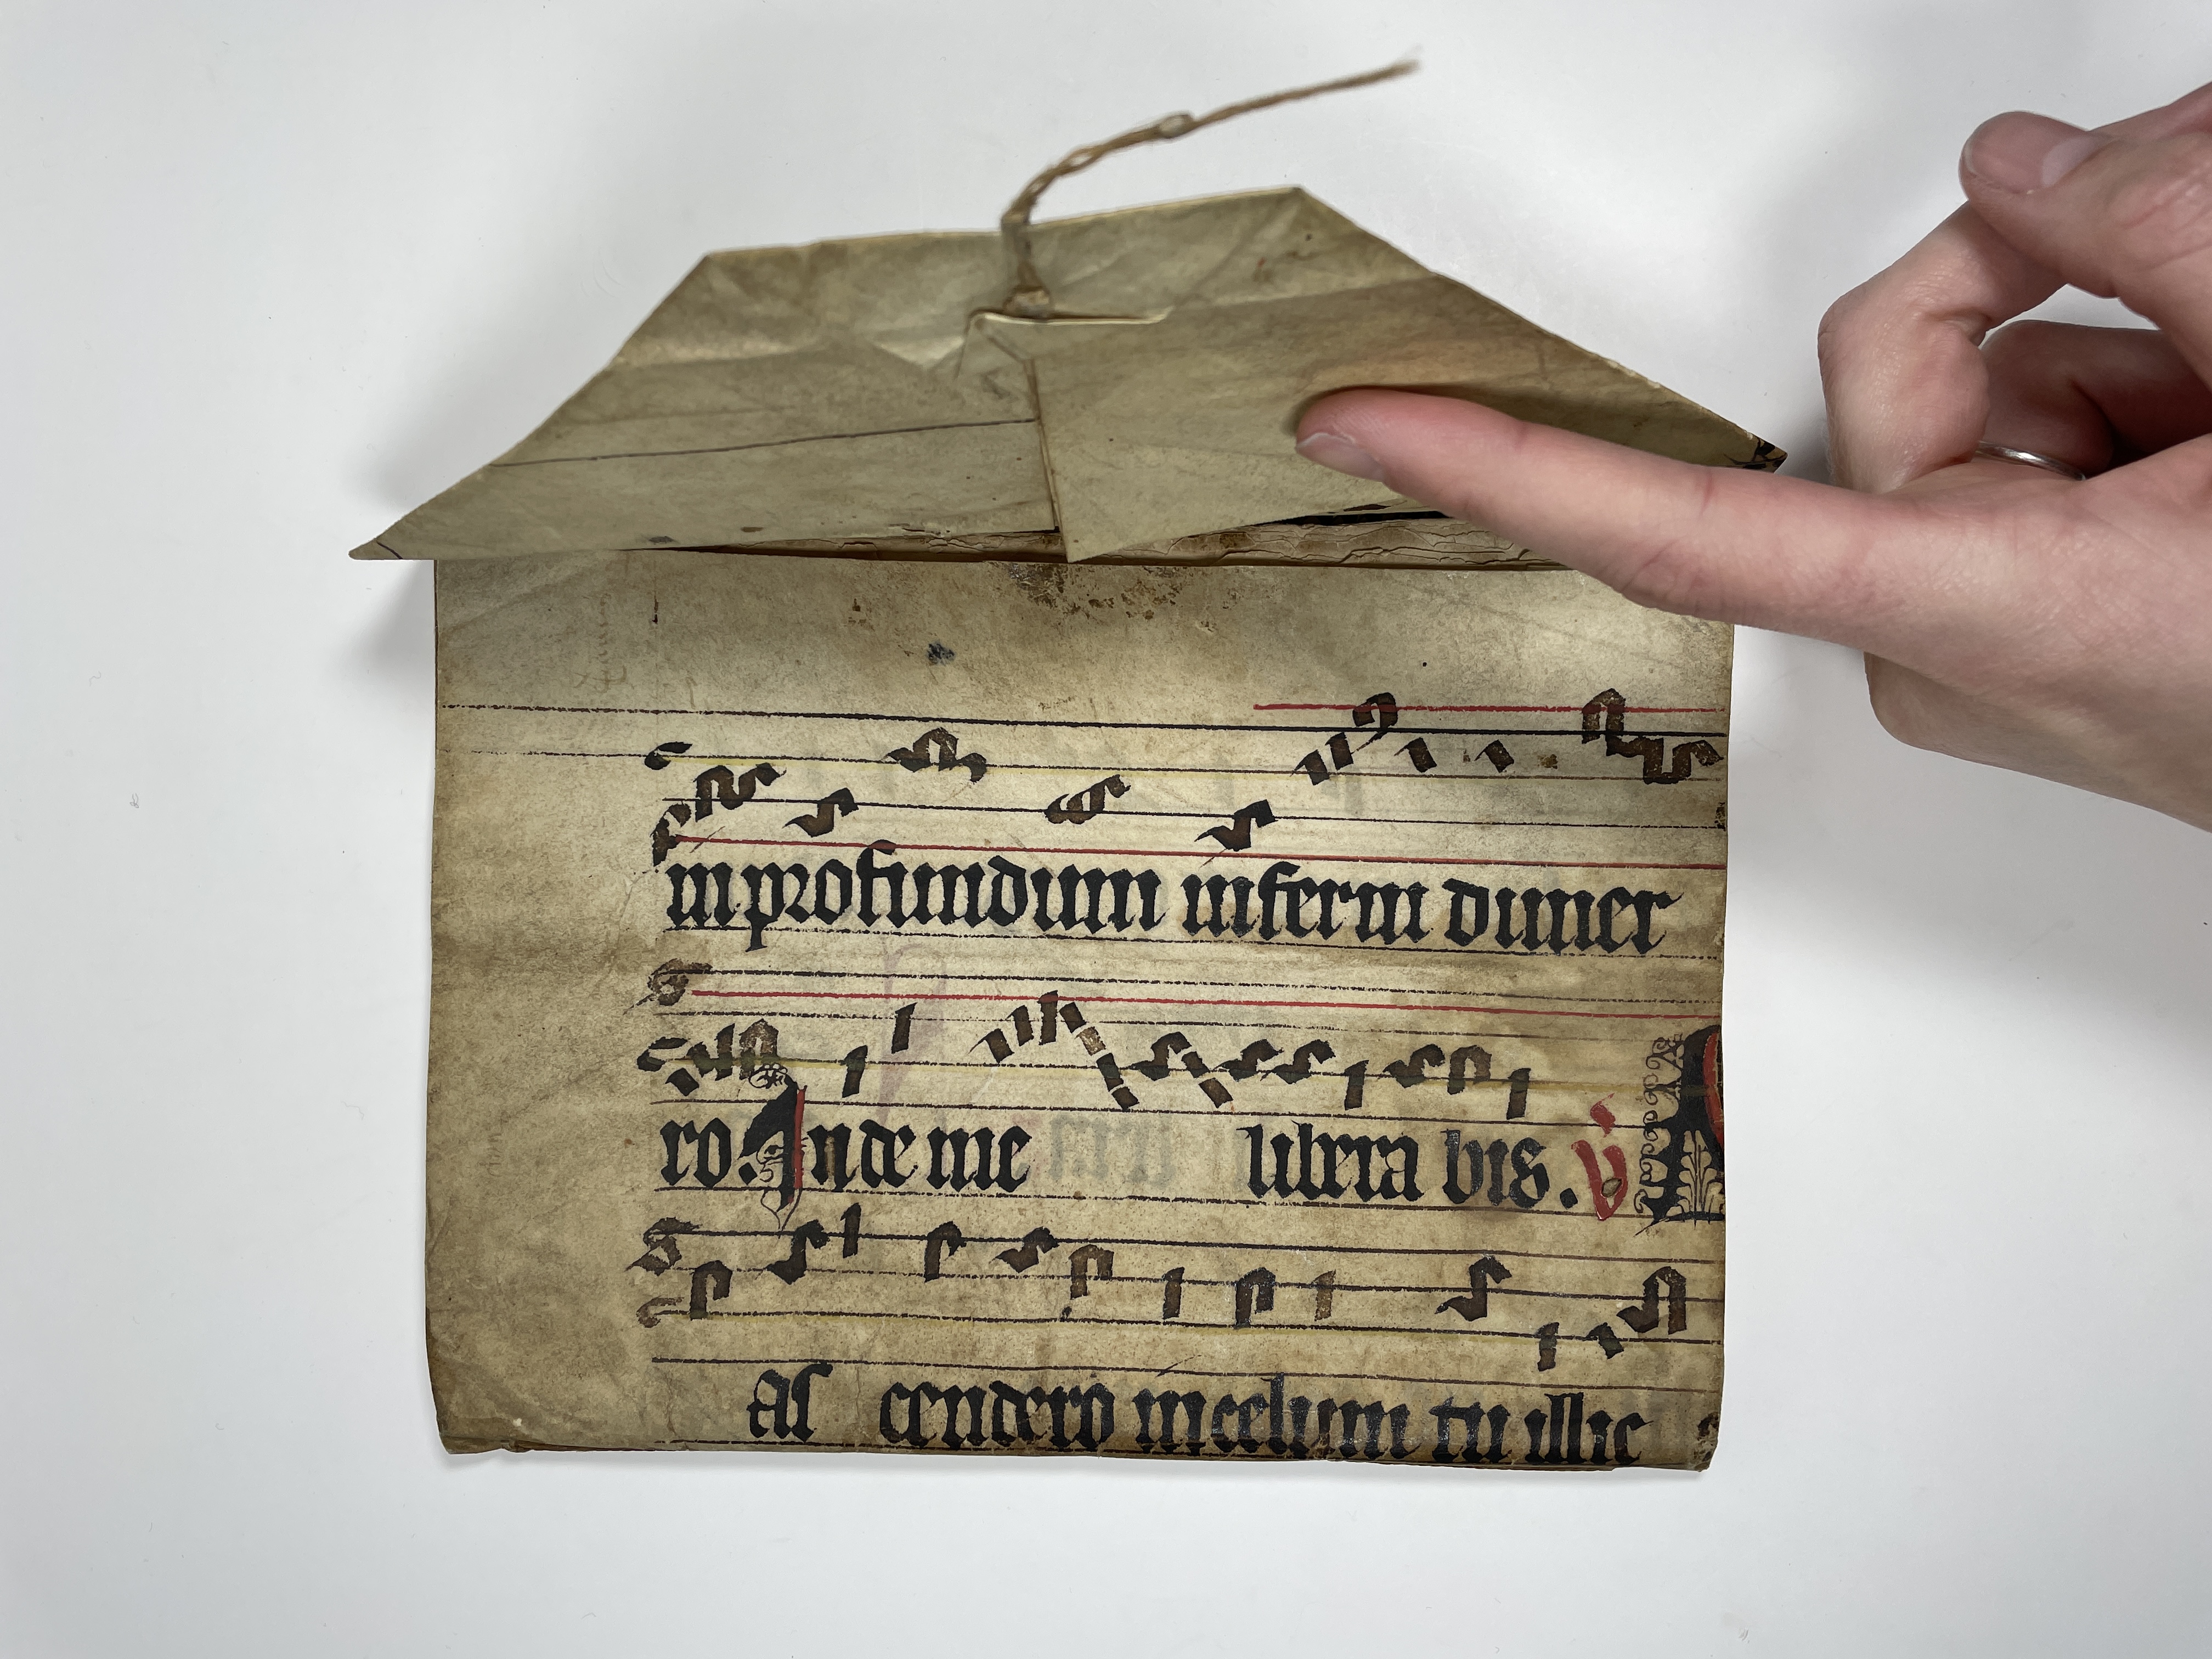 in profundum inferni dimer
ro. Inde me libera bis. v
As cendero in celum tu illic